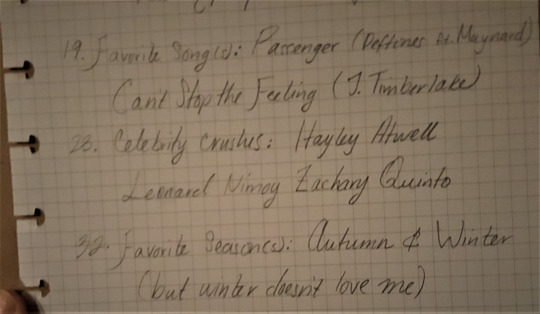 19. Favorite Song(s): Passenger (Deftones ft. Maynard)
Can't Stop the Feeling (J. Timberlake)
23. Celebrity Crushes: Hayley Atwell
Leonard Nimoy Zachary Quinto
32. Favorite Season(s): Autumn & Winter
(but winter doesn't love me)